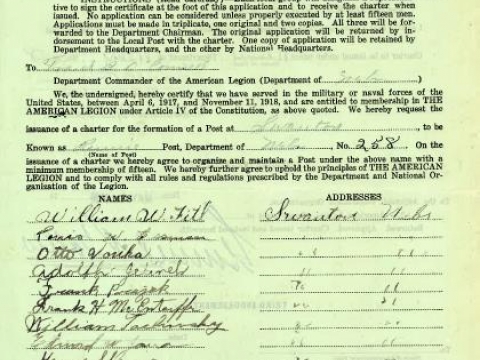 to sign the certificate at the foot of this application and to receive the charter when
issued. No application can be considered unless properly executed by at least fifteen men.
Applications must be made in triplicate, one original and two copies. All three will be for-
warded to the Department Chairman. The original application will be returned by in-
dorsement to the Local Post with the charter. One copy of application will be retained by
Department Headquarters, and the other by National Headquarters.
To
Department Commander of the American Legion (Department of
We, the undersigned, hereby certify that we have served in the military or naval forces of the
United States, between April 6, 1917, and November 11, 1918, and are entitled to membership in THE
AMERICAN LEGION under Article IV of the Constitution, as above quoted. We hereby request the
issuance of a charter for the formation of a Post at , to be
Known as Post, Department of No. 258. On the
(Name of Post)
issuance of a charter we hereby agree to organise and maintain a Post under the above name with a
minimum membership of fifteen. We hereby further agree to uphold the principles of THE AMERICAN
LEGION and to comply with all rules and regulations prescribed by the Department and National Or-
ganisation of the Legion.
NAMES ADDRESSES
William W. Swanton Nebr
Otto " "
Adolph " "
Frank
Frank H
William